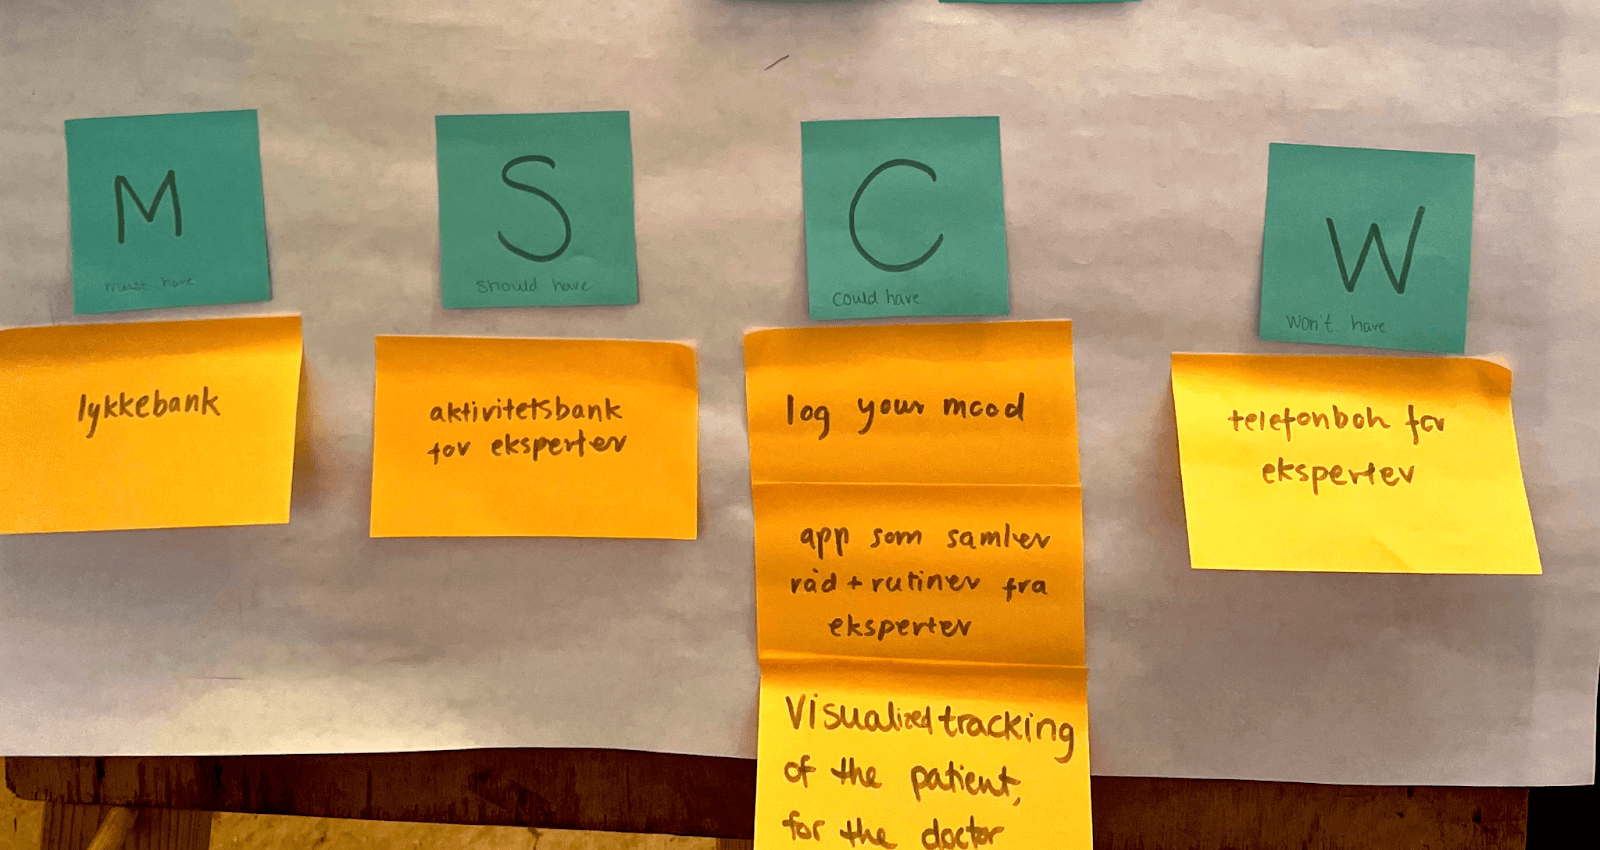 M
must have
lykkebank
S
should have
aktivitetsbank
for eksperter
C
could have
log your mood
app som samler
råd + rutiner fra
eksperter
Visualized tracking
of the patient,
for the doctor
W
Won't have
telefonbok for
eksperter